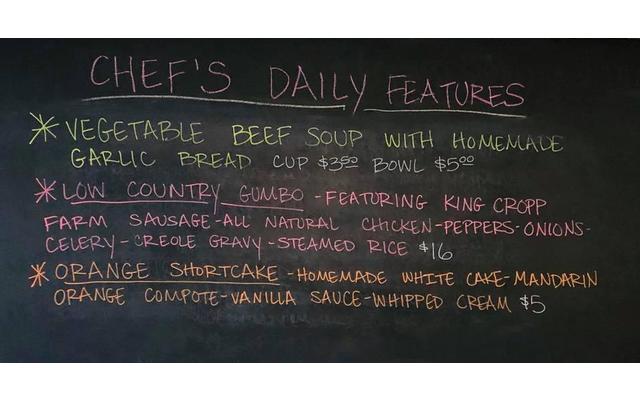 CHEF'S DAILY FEATURES
* VEGETABLE BEEF SOUP WITH HOMEMADE
GARLIC BREAD CUP $3.50 BOWL $5.00
* LOW COUNTRY GUMBO - FEATURING KING CROPP
FARM SAUSAGE - ALL NATURAL CHICKEN - PEPPERS - ONIONS -
CELERY - CREOLE GRAVY - STEAMED RICE $16
* ORANGE SHORTCAKE - HOMEMADE WHITE CAKE - MANDARIN
ORANGE COMPOTE - VANILLA SAUCE - WHIPPED CREAM $5